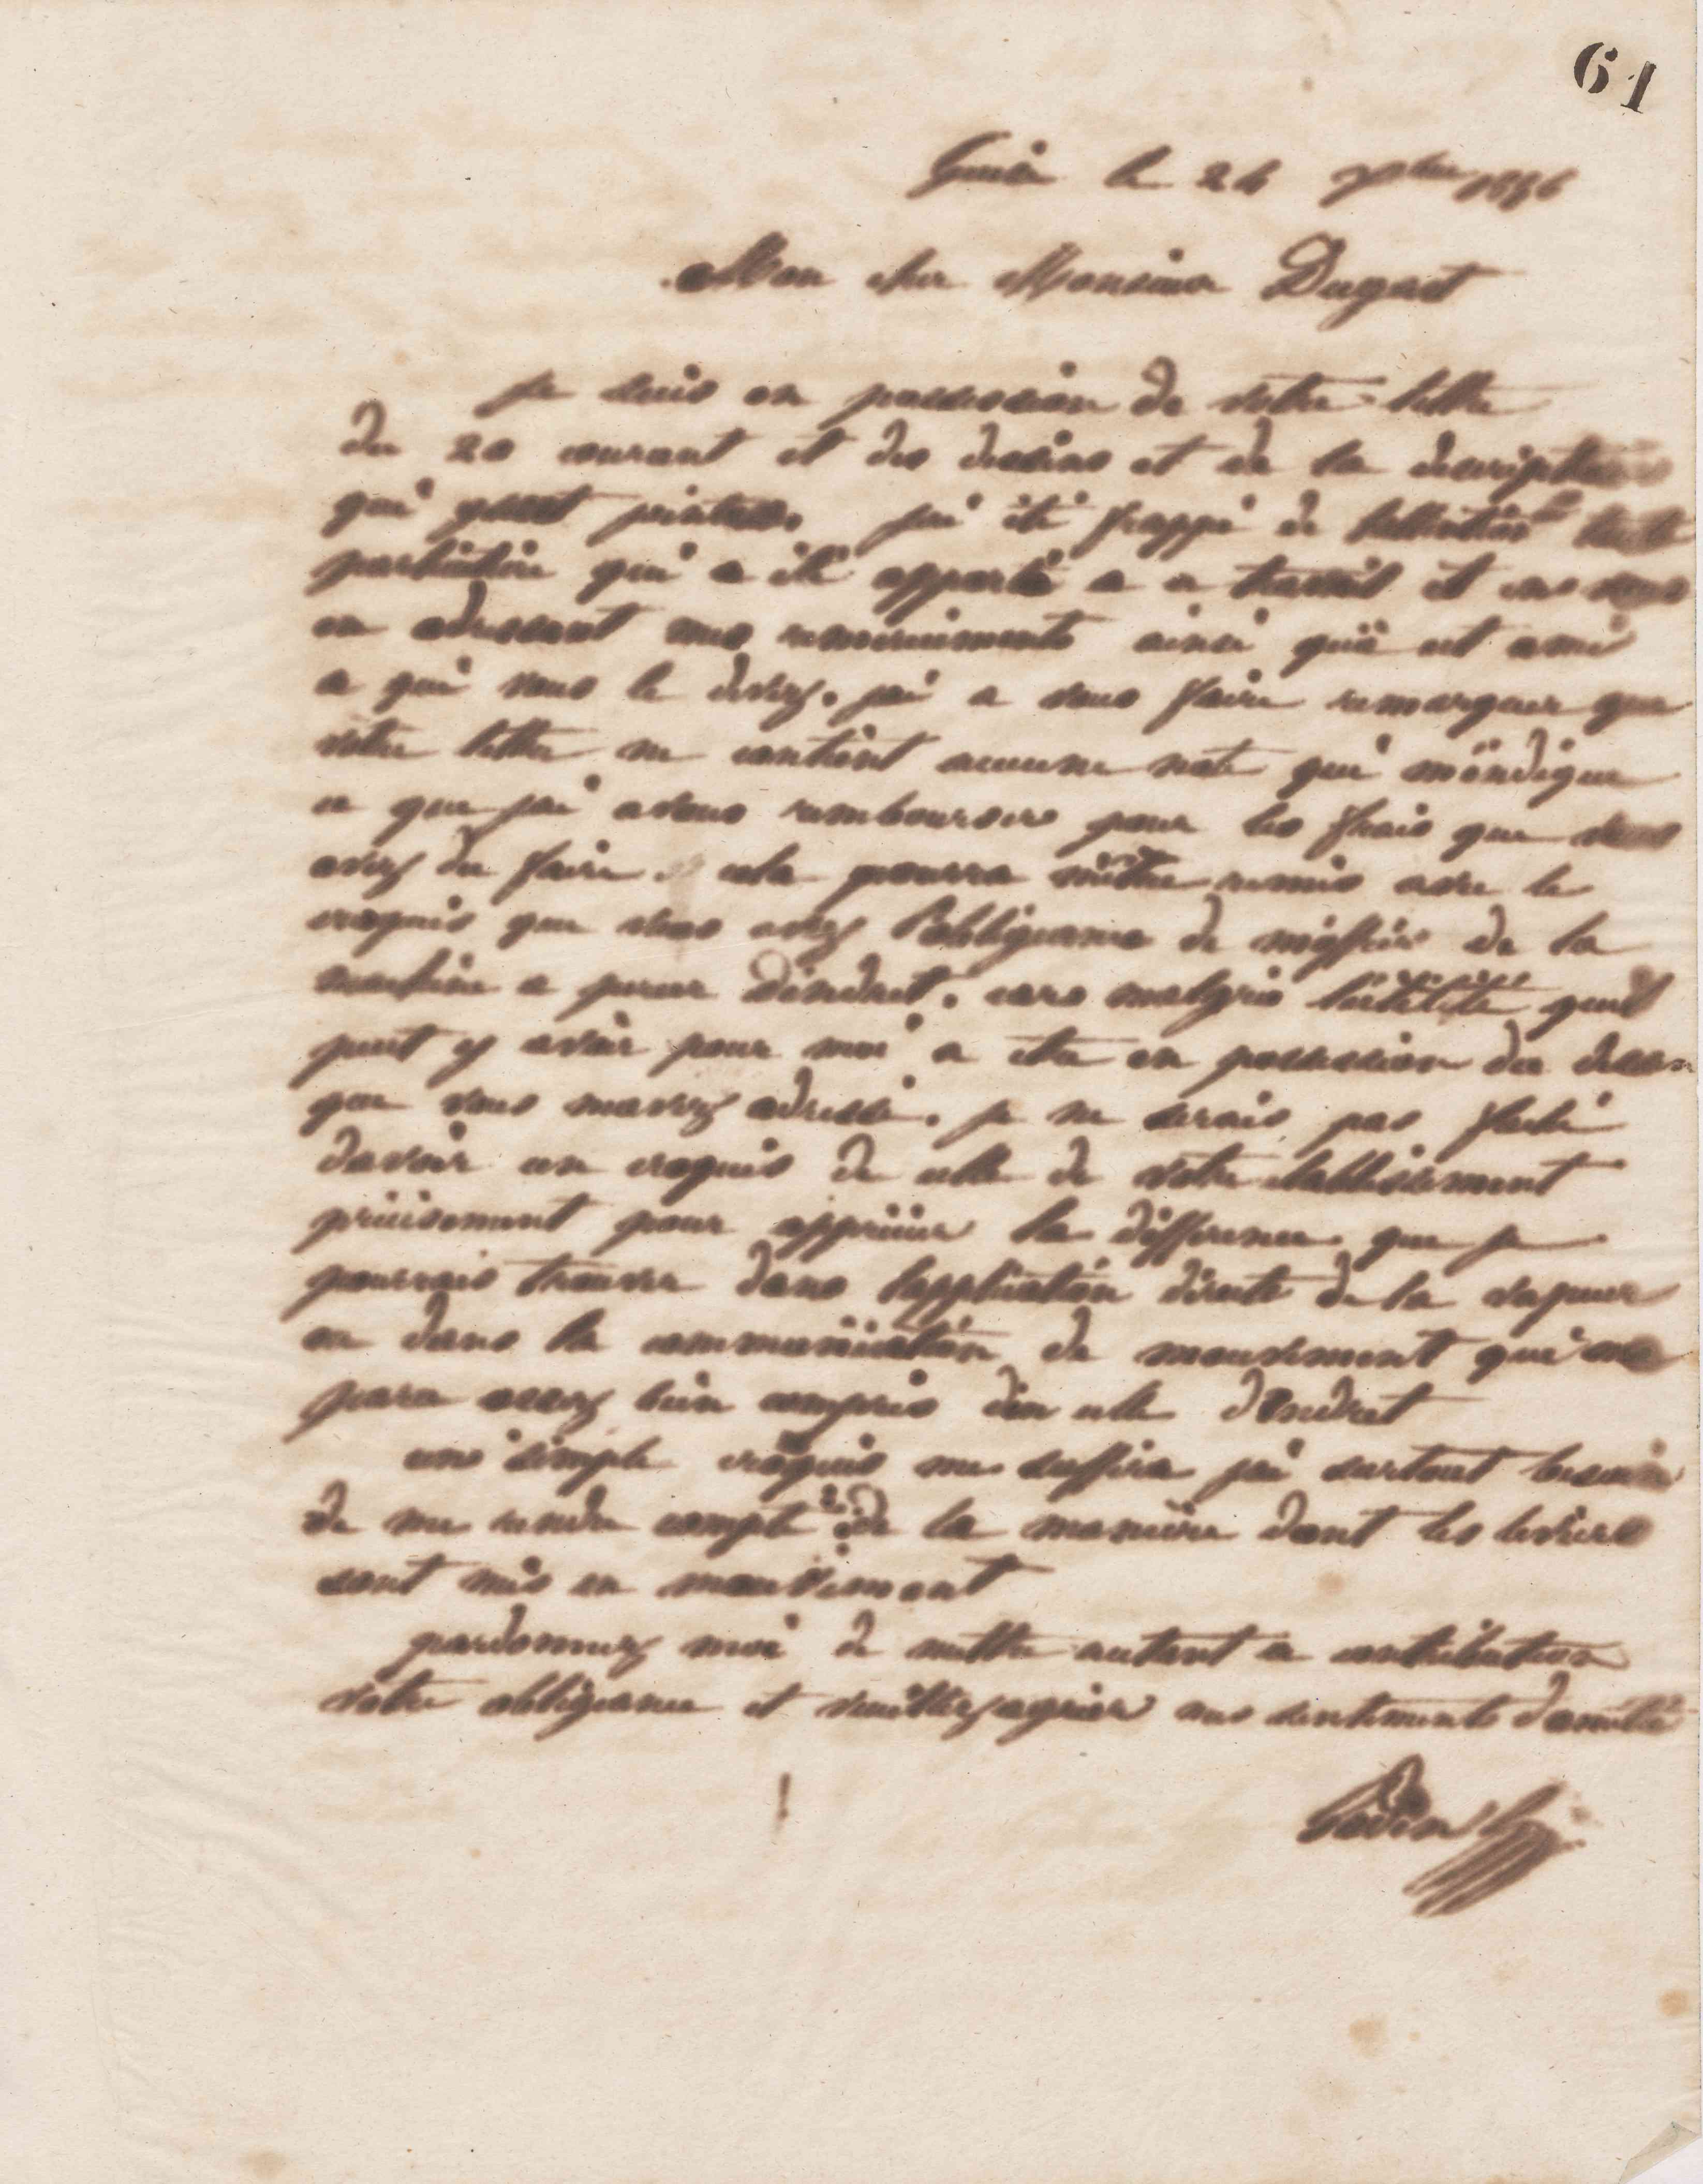 61
Guise le 24 9bre 1856
Mon cher Monsieur Dugast
je suis en possession de votre lettre
du 20 courant et des dessins et de la description
qui y sont jointes. jai été frappé de lattention toute
particulière qui a été apporté a ce travail et en vous
en adressant mes remerciements ainsi quà cet ami
a qui vous le devez. jai a vous faire remarquer que
votre lettre ne contient aucune note qui mindique
ce que jai a vous rembourser pour les frais que vous
avez du faire. cela pourra mêtre remis avec le
croquis que vous avez l'obligeance de moffrir de la
machine a percer dindret. car malgré lutilité quil
peut y avoir pour moi a etre en possession du dessin
que vous mavez adressé. je ne serais pas faché
davoir un croquis de celle de votre etablissement
précisement pour apprécier la difference que je
pourrais trouver dans lapplication directe de la vapeur
ou dans la communication de mouvement qui me
para assez bien compris dan celle dIndret
un simple croquis me suffira jai surtout besoin
de me rendre compte de la manière dont les leviers
sont mis en mouvement
pardonnez moi de mettre autant a contribution
votre obligeance et veuillez agréer mes sentiments damitié
Godin